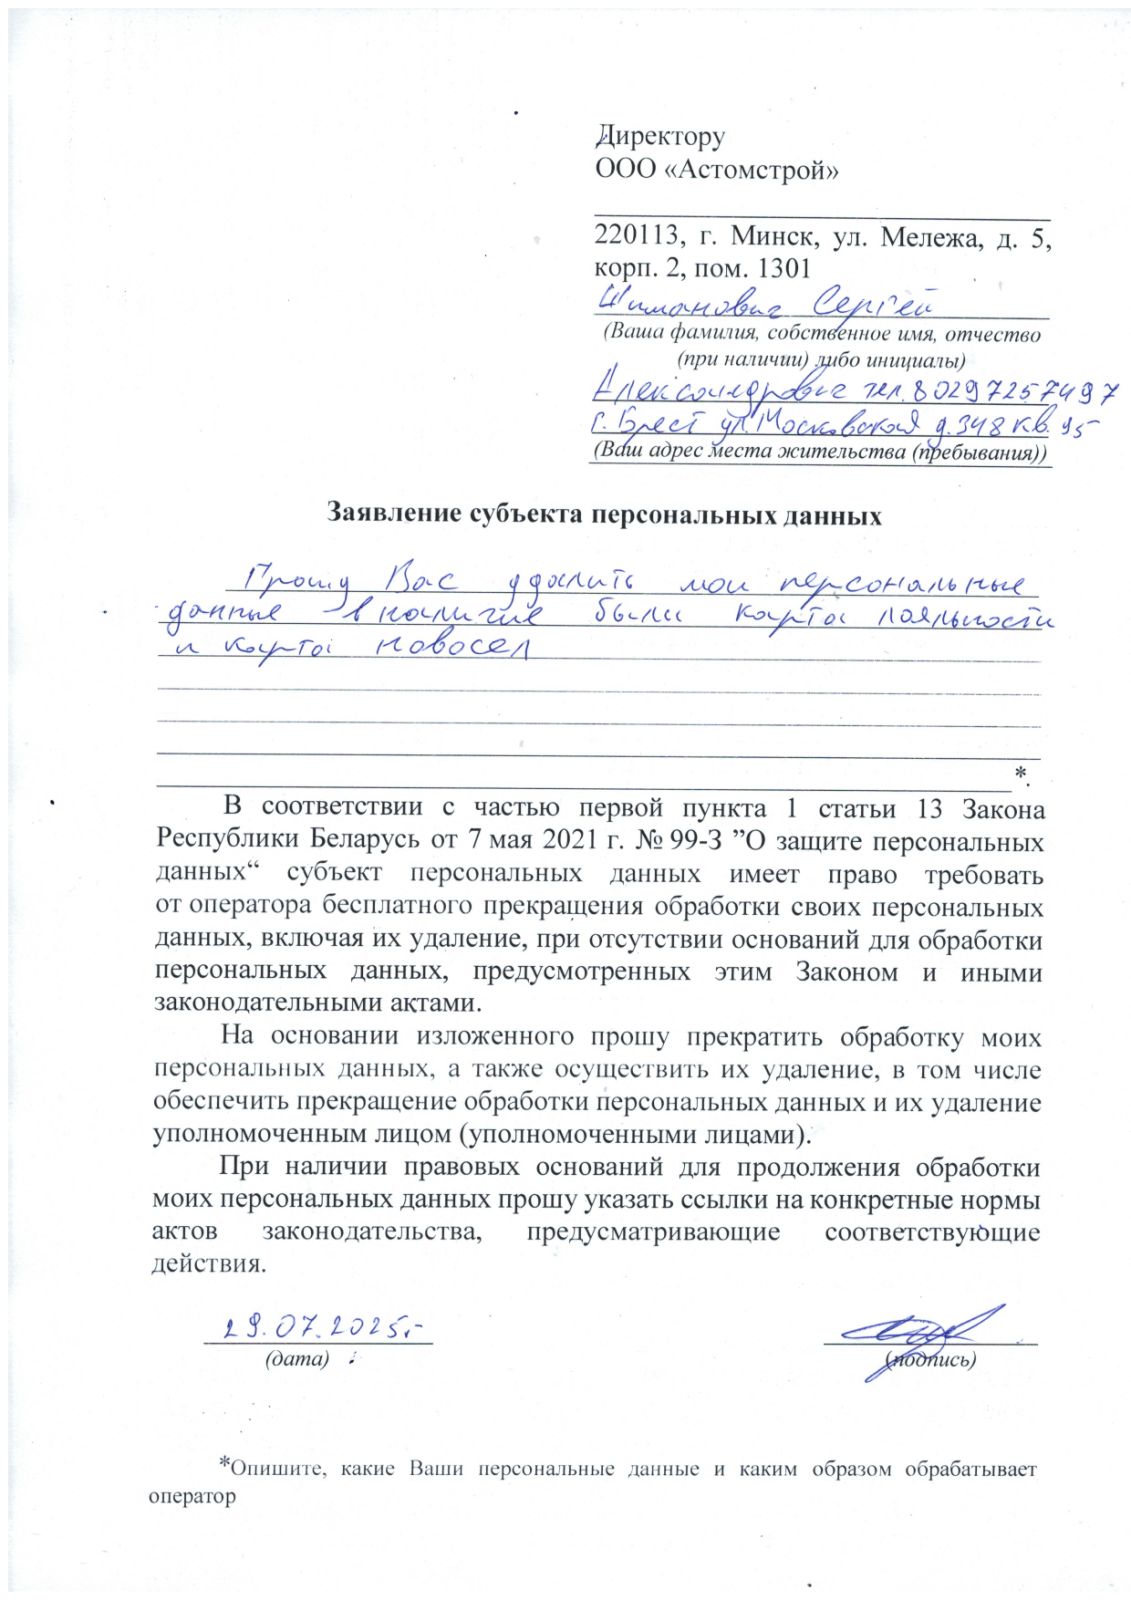 Директору
ООО «Астомстрой»
220113, г. Минск, ул. Мележа, д. 5,
корп. 2, пом. 1301
Шиманович Сергей
(Ваша фамилия, собственное имя, отчество
(при наличии) либо инициалы)
Александрович тел. 80297257497
г. Брест ул. Московская д. 348 кв. 95
(Ваш адрес места жительства (пребывания))
Заявление субъекта персональных данных
Прошу Вас удалить мои персональные
данные в наличие были карта лояльности
и карта новосел
*.
В соответствии с частью первой пункта 1 статьи 13 Закона
Республики Беларусь от 7 мая 2021 г. № 99-З ”О защите персональных
данных“ субъект персональных данных имеет право требовать
от оператора бесплатного прекращения обработки своих персональных
данных, включая их удаление, при отсутствии оснований для обработки
персональных данных, предусмотренных этим Законом и иными
законодательными актами.
На основании изложенного прошу прекратить обработку моих
персональных данных, а также осуществить их удаление, в том числе
обеспечить прекращение обработки персональных данных и их удаление
уполномоченным лицом (уполномоченными лицами).
При наличии правовых оснований для продолжения обработки
моих персональных данных прошу указать ссылки на конкретные нормы
актов законодательства, предусматривающие соответствующие
действия.
29.07.2025.-
(дата) (подпись)
*Опишите, какие Ваши персональные данные и каким образом обрабатывает
оператор